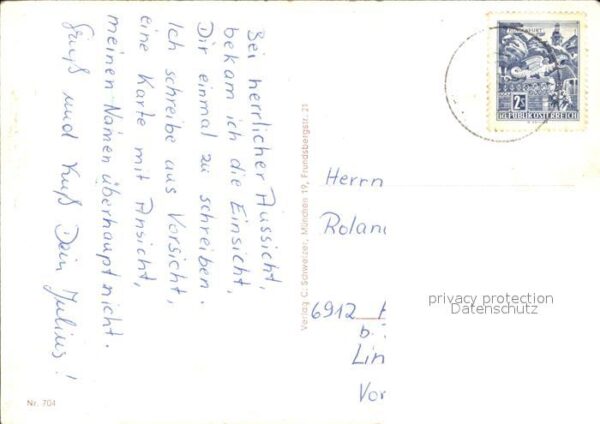 Bei herrlicher Aussicht,
bekam ich die Einsicht,
Dir einmal zu schreiben.
Ich schreibe aus Vorsicht,
eine Karte mit Ansicht,
meinen Namen überhaupt nicht.
Gruß und Kuß Dein Julius!
Nr. 704
Verlag C. Schweizer, München 19, Frundsbergstr. 12
2S
REPUBLIK ÖSTERREICH
Herrn
Rolan
6912
b.
Lin
Vor
privacy protection
Datenschutz